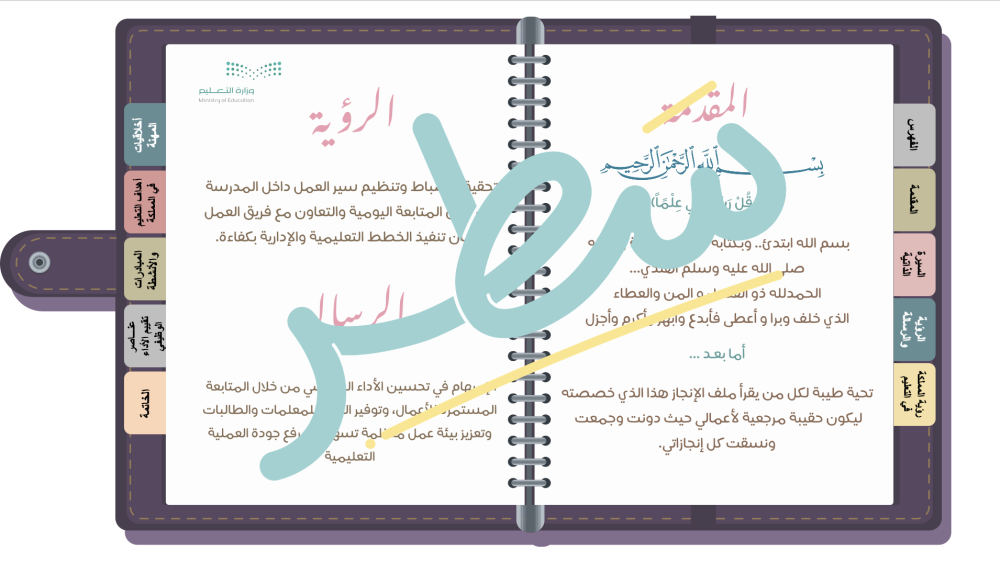 المقدمة
بِسْمِ اللَّهِ الرَّحْمَنِ الرَّحِيمِ
(وَقُلْ رَبِّ زِدْنِي عِلْمًا)
بسم الله ابتدئ.. وبكتابه
صلى الله عليه وسلم اهتدي...
الحمدلله ذو الفضل و المن والعطاء
الذي خلف وبرا و أعطى فأبدع وأبهر وأكرم وأجزل
أما بعد ...
تحية طيبة لكل من يقرأ ملف الإنجاز هذا الذي خصصته
ليكون حقيبة مرجعية لأعمالي حيث دونت وجمعت
ونسقت كل إنجازاتي.
الفهرس
المقدمة
السيرة الذاتية
الرؤية والرسالة
رؤية المملكة في التعليم
وزارة التعليم
Ministry of Education
الرؤية
تحقيق وتنظيم سير العمل داخل المدرسة
المتابعة اليومية والتعاون مع فريق العمل
تنفيذ الخطط التعليمية والإدارية بكفاءة.
الرسالة
الإسهام في تحسين الأداء من خلال المتابعة
المستمرة للأعمال، وتوفير للمعلمات والطالبات
وتعزيز بيئة عمل منظمة رفع جودة العملية
التعليمية
أخلاقيات المهنة
أهداف التعليم في المملكة
المبادرات والأنشطة
عناصر تقييم الأداء الوظيفي
الخاتمة
سطر